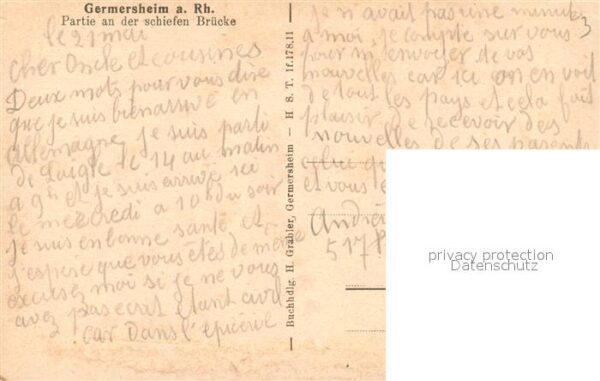 Germersheim a. Rh.
Partie an der schiefen Brücke
le 21 mai
Cher Oncle et cousines
Deux mots pour vous dire
que je suis bien arrivé en
allemagne, je suis parti
de Laigle le 14 au matin
a 9h et je suis arrivé ici
le mercredi a 10h du soir
je suis en bonne santé et
j'espère que vous êtes de même
excusez moi si je ne vous
avez pas ecrit étant
car Dans l'
Buchhdlg. H. Gräbler, Germersheim — H. S. T. 1f.178.11
je n'avait pas une minute
a moi, je compte sur vous
pour m'envoyer de vos
nouvelles car ici on en voit
de tout les pays et cela fait
plaisir de recevoir des
nouvelles de ses parents
et vous
André
517
privacy protection
Datenschutz